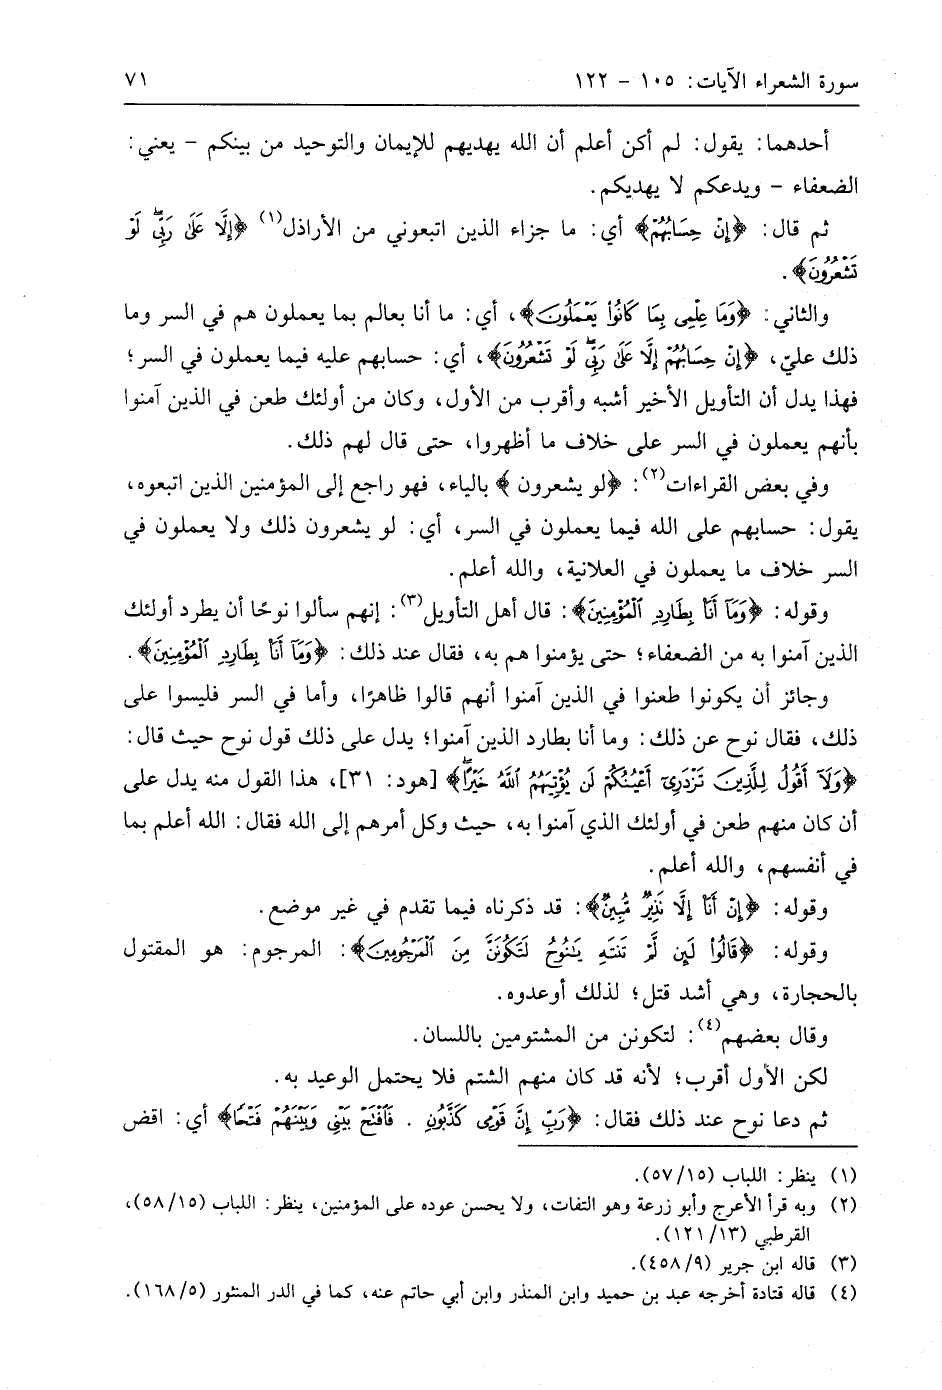 سورة الشعراء الآيات: ١٠٥ – ١٢٢
٧١
أحدهما: يقول: لم أكن أعلم أن الله يهديهم للإيمان والتوحيد من بينكم – يعني:
الضعفاء – ويدعكم لا يهديكم.
ثم قال: ﴿إِنْ حِسَابُهُمْ﴾ أي: ما جزاء الذين اتبعوني من الأراذل(١) ﴿إِلَّا عَلَىٰ رَبِّيۖ لَوْ
تَشْعُرُونَ﴾.
والثاني: ﴿وَمَا عِلْمِى بِمَا كَانُوا۟ يَعْمَلُونَ﴾، أي: ما أنا بعالم بما يعملون هم في السر وما
ذلك عليّ، ﴿إِنْ حِسَابُهُمْ إِلَّا عَلَىٰ رَبِّيۖ لَوْ تَشْعُرُونَ﴾، أي: حسابهم عليه فيما يعملون في السر؛
فهذا يدل أن التأويل الأخير أشبه وأقرب من الأول، وكان من أولئك طعن في الذين آمنوا
بأنهم يعملون في السر على خلاف ما أظهروا، حتى قال لهم ذلك.
وفي بعض القراءات(٢): ﴿لو يشعرون﴾ بالياء، فهو راجع إلى المؤمنين الذين اتبعوه،
يقول: حسابهم على الله فيما يعملون في السر، أي: لو يشعرون ذلك ولا يعملون في
السر خلاف ما يعملون في العلانية، والله أعلم.
وقوله: ﴿وَمَآ أَنَا۠ بِطَارِدِ ٱلْمُؤْمِنِينَ﴾: قال أهل التأويل(٣): إنهم سألوا نوحًا أن يطرد أولئك
الذين آمنوا به من الضعفاء؛ حتى يؤمنوا هم به، فقال عند ذلك: ﴿وَمَآ أَنَا۠ بِطَارِدِ ٱلْمُؤْمِنِينَ﴾.
وجائز أن يكونوا طعنوا في الذين آمنوا أنهم قالوا ظاهرًا، وأما في السر فليسوا على
ذلك، فقال نوح عن ذلك: وما أنا بطارد الذين آمنوا؛ يدل على ذلك قول نوح حيث قال:
﴿وَلَآ أَقُولُ لِلَّذِينَ تَزْدَرِىٓ أَعْيُنُكُمْ لَن يُؤْتِيَهُمُ ٱللَّهُ خَيْرًاۖ﴾ [هود: ٣١]، هذا القول منه يدل على
أن كان منهم طعن في أولئك الذي آمنوا به، حيث وكل أمرهم إلى الله فقال: الله أعلم بما
في أنفسهم، والله أعلم.
وقوله: ﴿إِنْ أَنَا۠ إِلَّا نَذِيرٌ مُّبِينٌ﴾: قد ذكرناه فيما تقدم في غير موضع.
وقوله: ﴿قَالُوا۟ لَئِن لَّمْ تَنتَهِ يَٰنُوحُ لَتَكُونَنَّ مِنَ ٱلْمَرْجُومِينَ﴾: المرجوم: هو المقتول
بالحجارة، وهي أشد قتل؛ لذلك أوعدوه.
وقال بعضهم(٤): لتكونن من المشتومين باللسان.
لكن الأول أقرب؛ لأنه قد كان منهم الشتم فلا يحتمل الوعيد به.
ثم دعا نوح عند ذلك فقال: ﴿رَبِّ إِنَّ قَوْمِى كَذَّبُونِ . فَٱفْتَحْ بَيْنِى وَبَيْنَهُمْ فَتْحًا﴾ أي: اقض
(١) ينظر: اللباب (٥٧/١٥).
(٢) وبه قرأ الأعرج وأبو زرعة وهو التفات، ولا يحسن عوده على المؤمنين، ينظر: اللباب (٥٨/١٥)،
القرطبي (١٢١/١٣).
(٣) قاله ابن جرير (٤٥٨/٩).
(٤) قاله قتادة أخرجه عبد بن حميد وابن المنذر وابن أبي حاتم عنه، كما في الدر المنثور (١٦٨/٥).